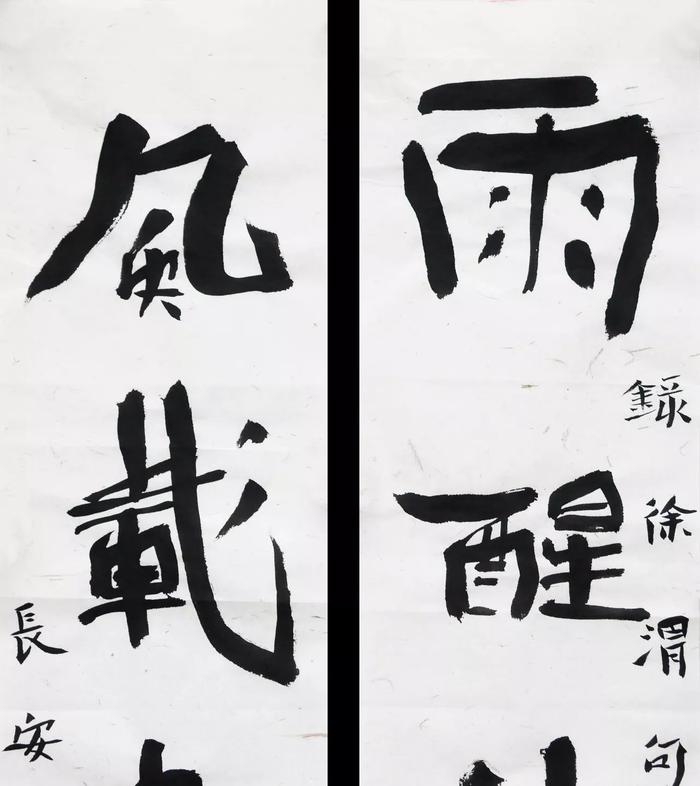 錄徐渭句
雨醒
風載
長安